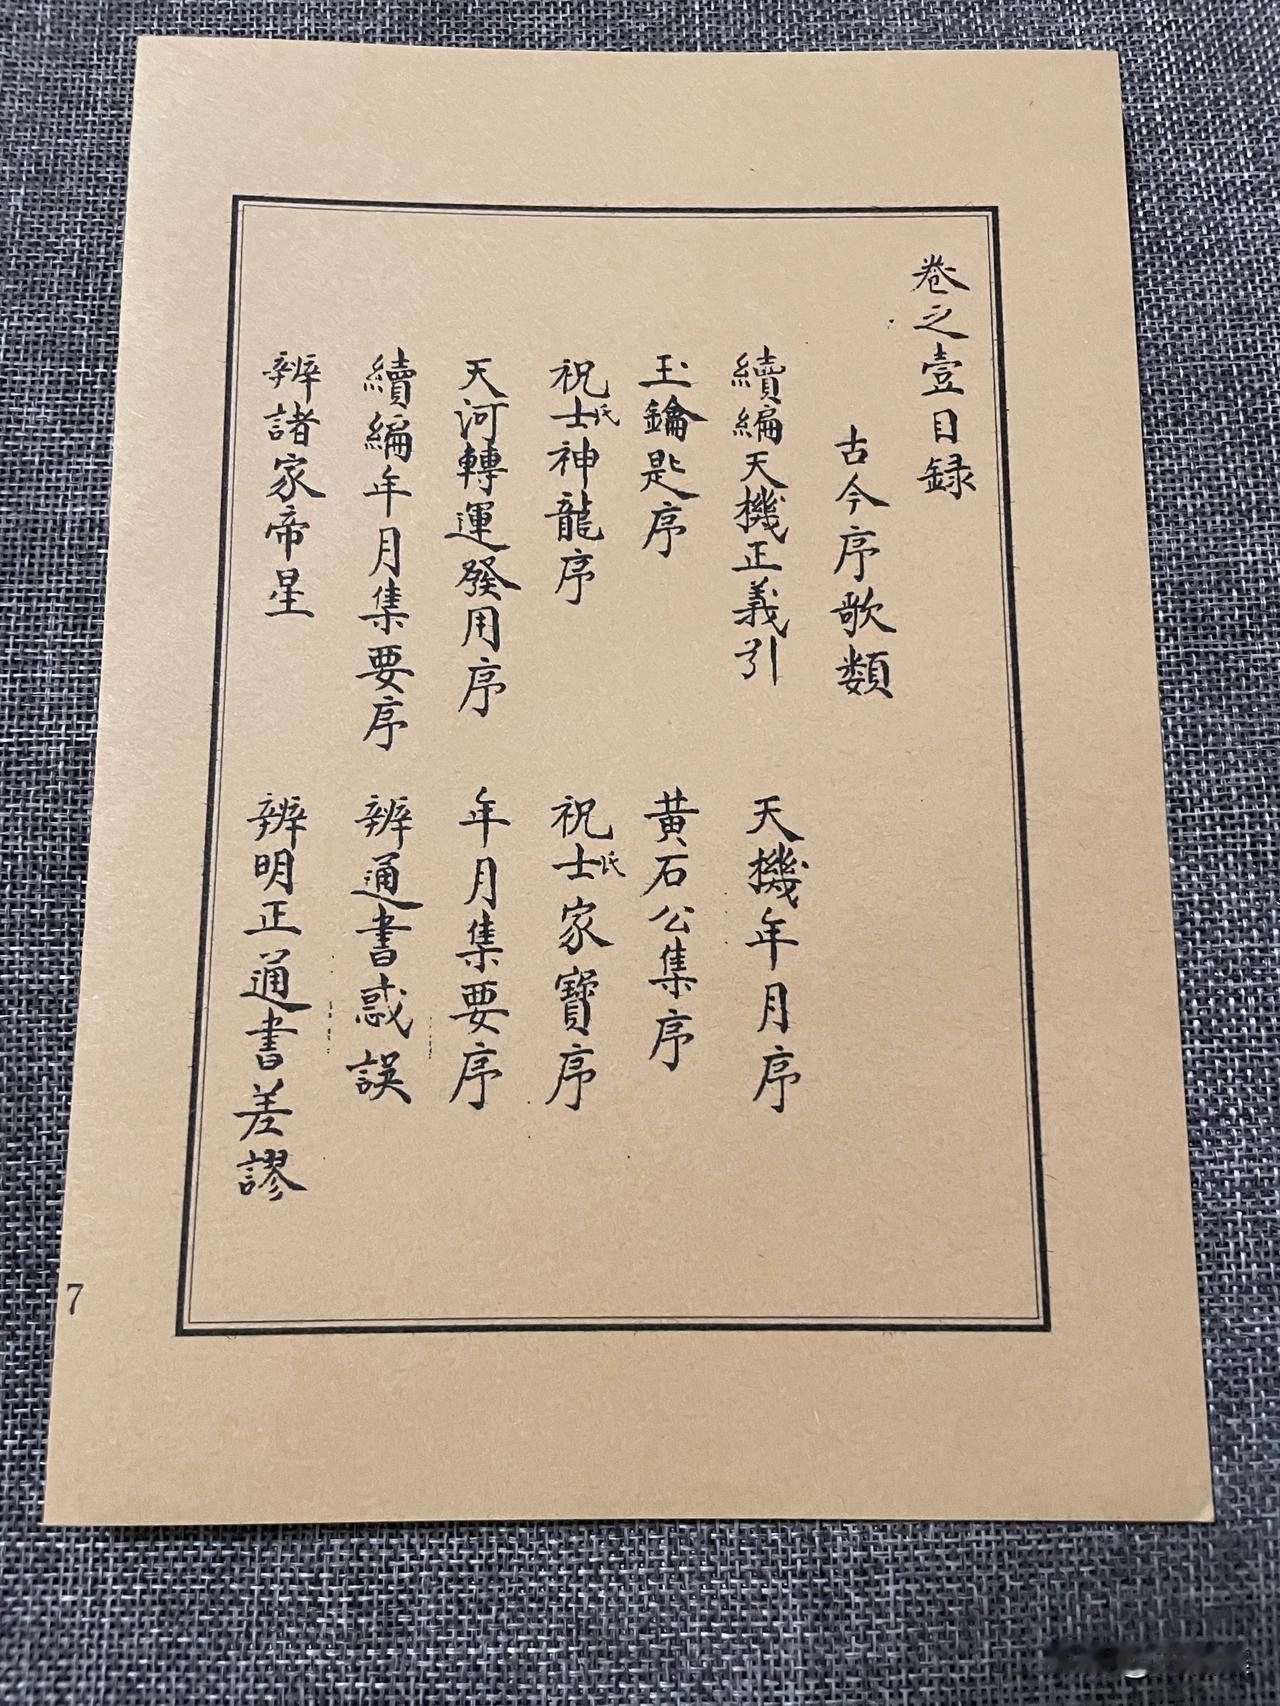 卷之壹目録
古今序歌類
續編天機正義引
天機年月序
玉鑰匙序
黄石公集序
祝士氏神龍序
祝士氏家寶序
天河轉運發用序
年月集要序
續編年月集要序
辨通書惑誤
辨諸家帝星
辨明正通書差謬
7